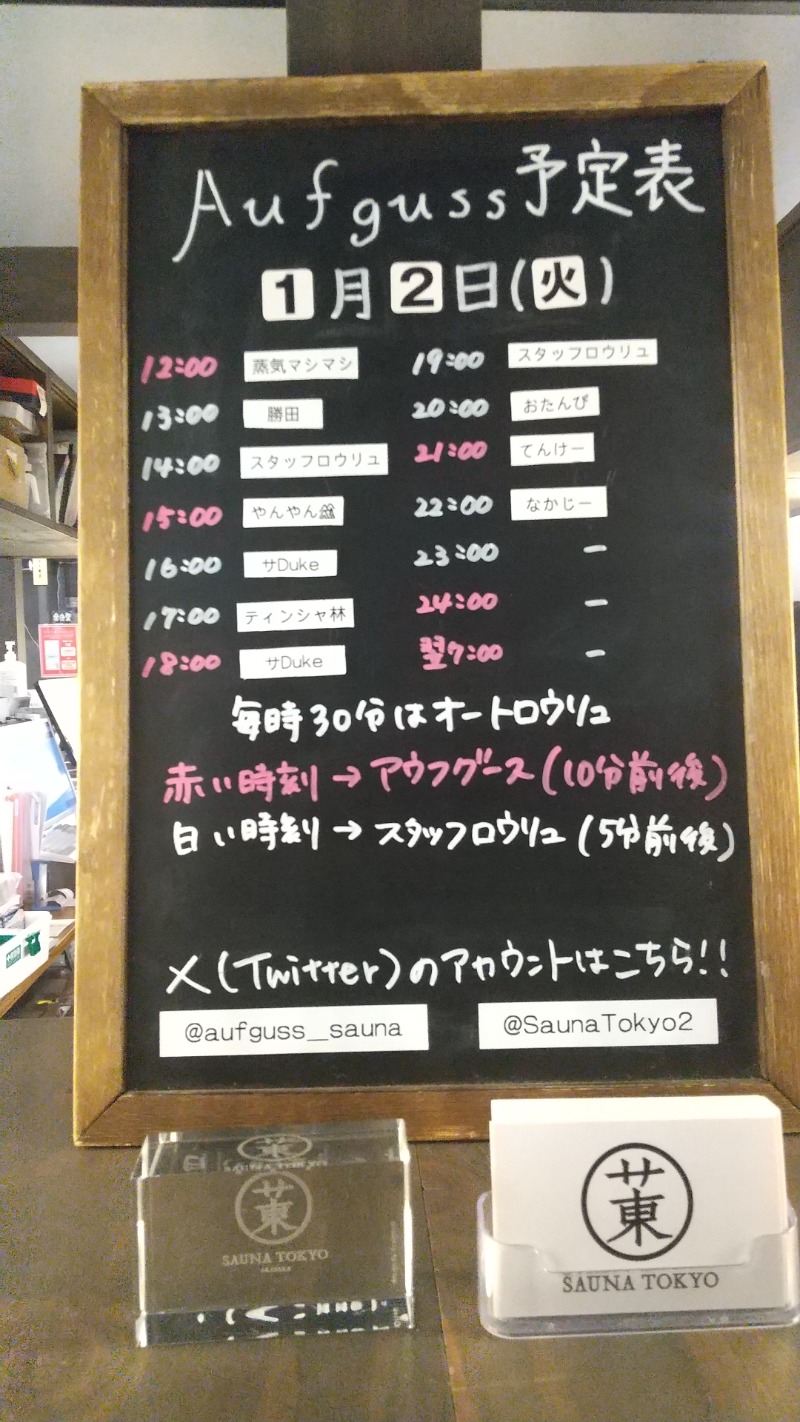 Aufguss予定表
1月2日(火)
12:00 蒸気マシマシ
13:00 勝田
14:00 スタッフロウリュ
15:00 やんやん
16:00 サDuke
17:00 ティンシャ林
18:00 サDuke
19:00 スタッフロウリュ
20:00 おたんぴ
21:00 てんけー
22:00 なかじー
23:00 ー
24:00 ー
翌7:00 ー
毎時30分はオートロウリュ
赤い時刻→アウフグース(10分前後)
白い時刻→スタッフロウリュ(5分前後)
X(Twitter)のアカウントはこちら!!
@aufguss__sauna
@SaunaTokyo2
サ東
SAUNA TOKYO
サ東
SAUNA TOKYO